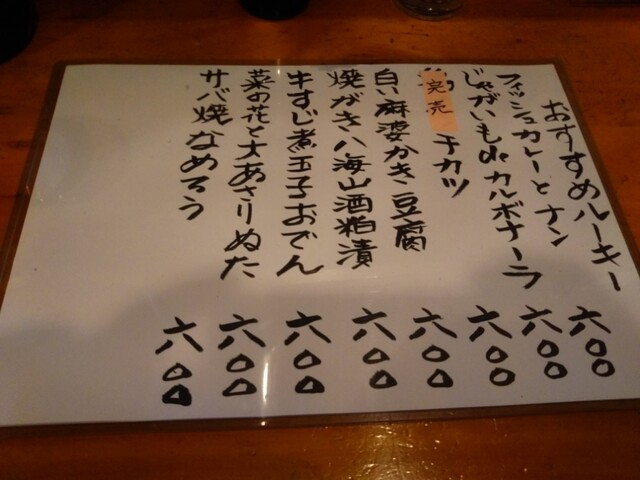 おすすめルーキー 六〇〇
フィッシュカレーとナン 六〇〇
じゃがいもdeカルボナーラ 六〇〇
完売 チカツ 六〇〇
白い麻婆かき豆腐 六〇〇
焼がき八海山酒粕漬 六〇〇
牛すじ煮玉子おでん 六〇〇
菜の花と大あさりぬた 六〇〇
サバ焼なめろう